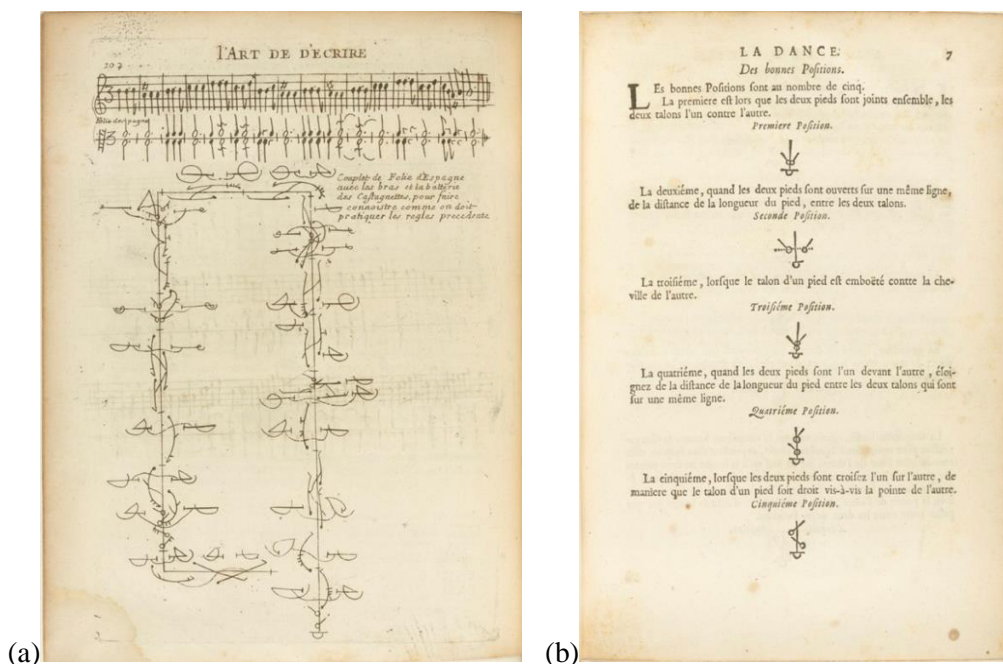 l'ART DE D'ECRIRE
207
Folie despagne
Couplet de Folie d'Espagne
avec les bras et la batterie
des Castagnettes, pour faire
connoistre comme on doit
pratiquer les regles precedente
(a)
LA DANCE.
7
Des bonnes Positions.
LEs bonnes Positions sont au nombre de cinq.
La premiere est lors que les deux pieds sont joints ensemble, les
deux talons l'un contre l'autre.
Premiere Position.
La deuxiéme, quand les deux pieds sont ouverts sur une même ligne,
de la distance de la longueur du pied, entre les deux talons.
Seconde Position.
La troisiéme, lorsque le talon d'un pied est emboëté contre la che-
ville de l'autre.
Troisiéme Position.
La quatriéme, quand les deux pieds sont l'un devant l'autre, éloi-
gnez de la distance de la longueur du pied entre les deux talons qui sont
sur une même ligne.
Quatriéme Position.
La cinquiéme, lorsque les deux pieds sont croisez l'un sur l'autre, de
maniere que le talon d'un pied soit droit vis-à-vis la pointe de l'autre.
Cinquiéme Position.
(b)